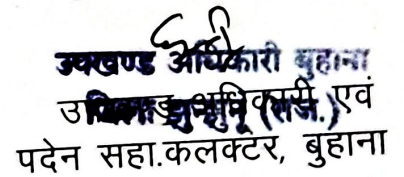 उपखण्ड अधिकारी बुहाना
जिला झुन्झुनू (राज.)
उपखण्ड अधिकारी एवं
पदेन सहा.कलक्टर, बुहाना